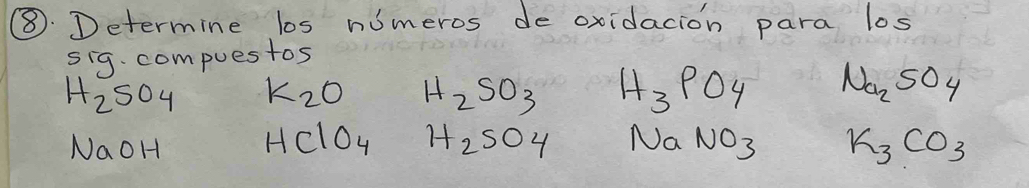 ⑧. Determine los números de oxidación para los
sig. compuestos
H2SO4 K2O H2SO3 H3PO4 Na2SO4
NaOH HClO4 H2SO4 NaNO3 K3CO3